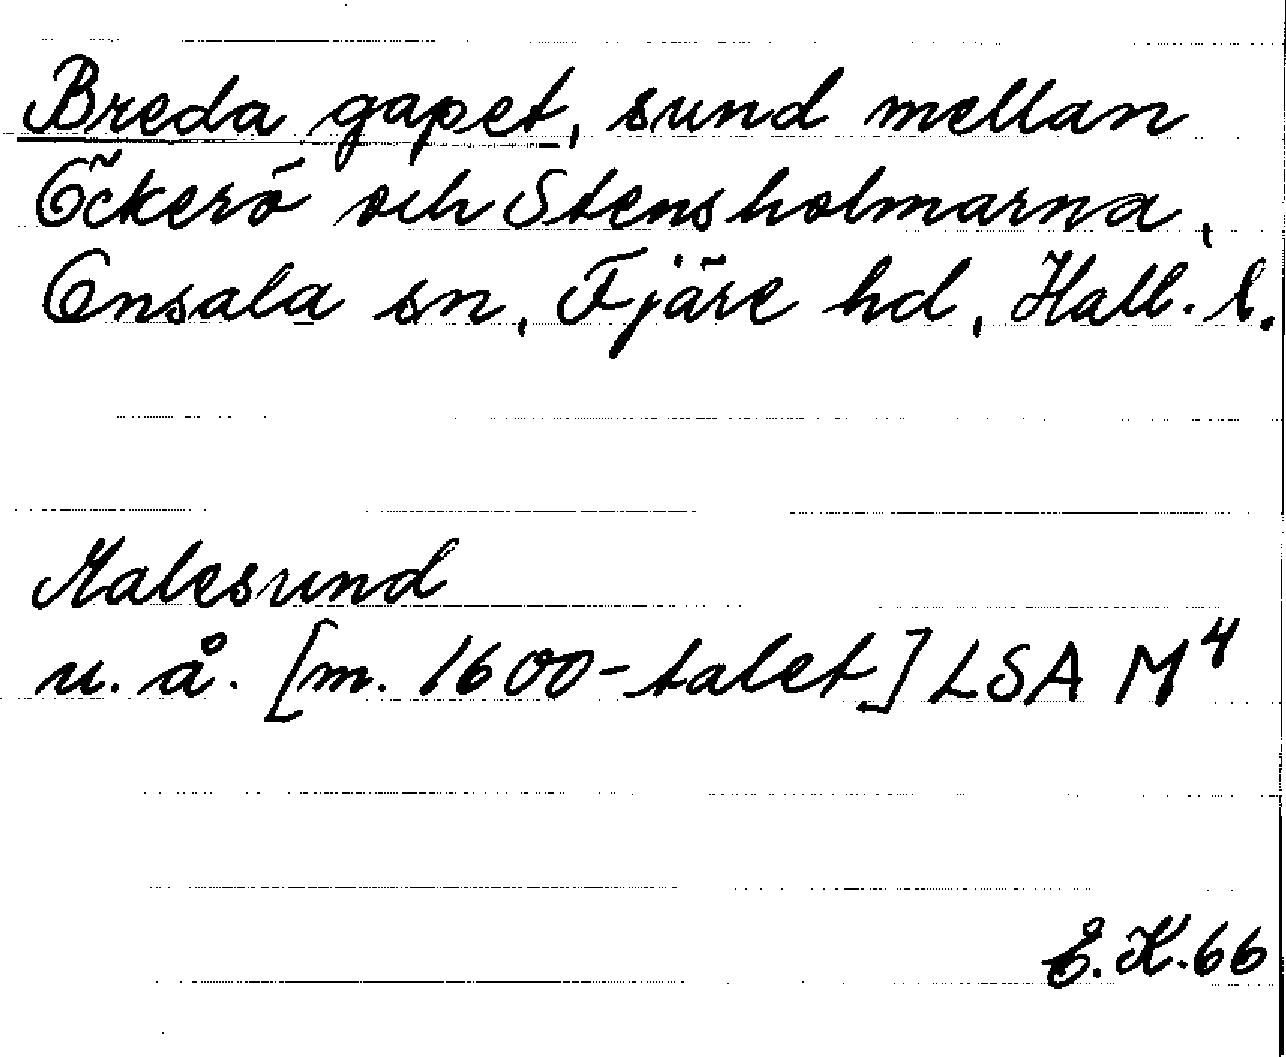 Breda gapet, sund mellan
Öckerö och Stensholmarna,
Onsala sn, Fjäre hd, Hall. l.
Malesund
u. å. [m. 1600-talet] LSA M4
E. K. 66